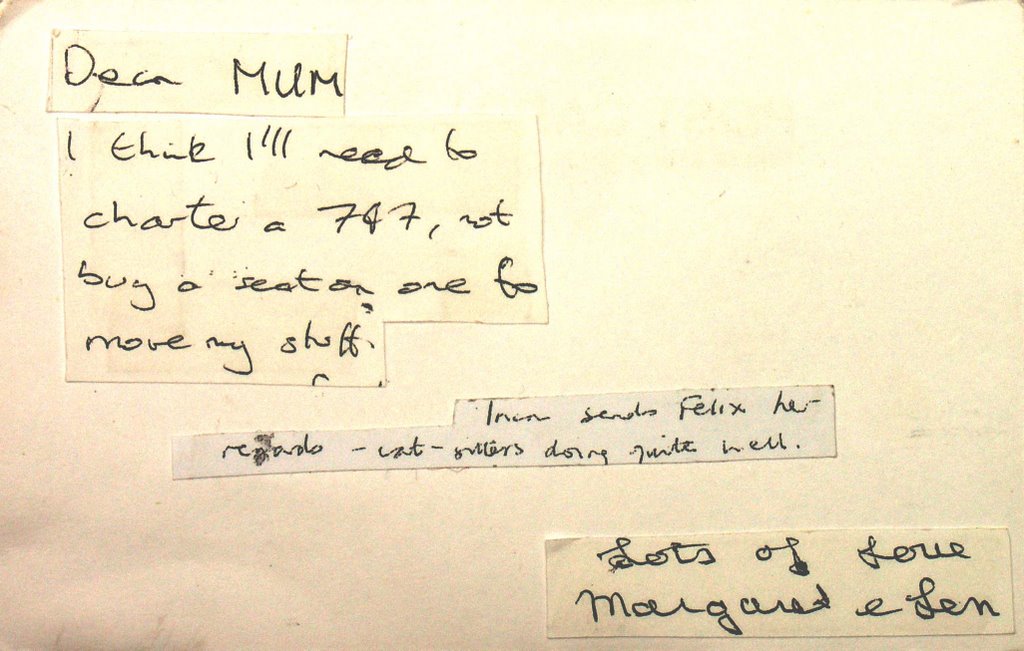 Dear MUM
I think I'll need to
charter a 747, not
buy a seat on one to
move my stuff.
sends Felix her
regards - cat-sitters doing quite well.
Lots of Love
Margaret & Len